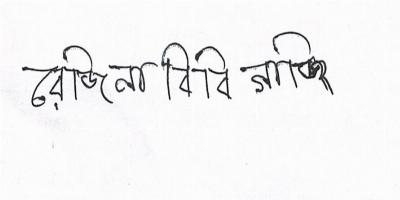 রেজিনা বিবি গাজি